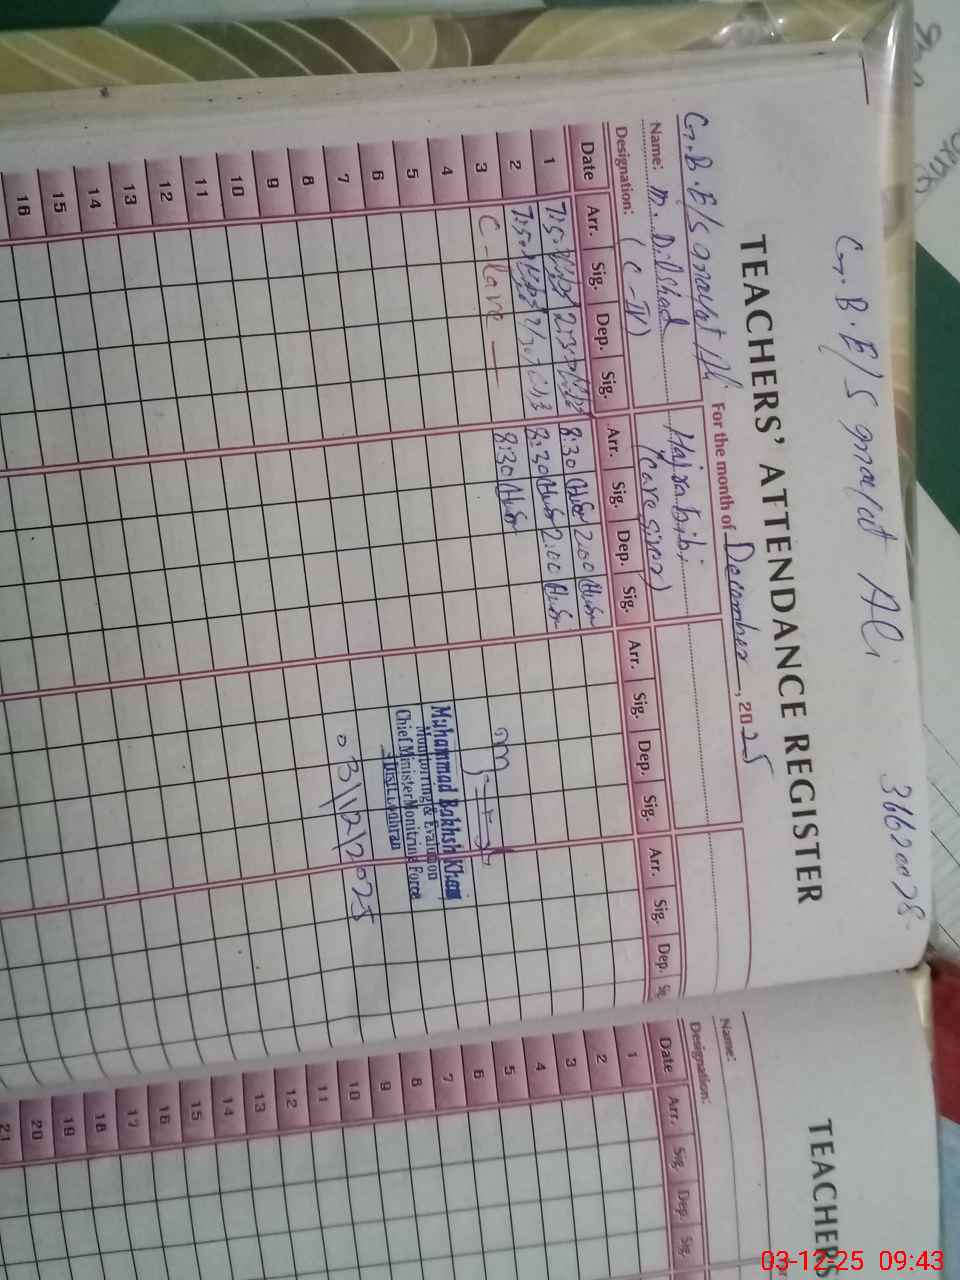 G.B.E/S Inayat Ali 3620078
TEACHERS' ATTENDANCE REGISTER
For the month of December, 2025
G.B.E/S Inayat Ali
Name: M. Dilshad
Designation: (C-IV)
Hajra bibi
(care giver)
Date Arr. Sig. Dep. Sig. Arr. Sig. Dep. Sig. Arr. Sig. Dep. Sig. Arr. Sig. Dep. Sig.
1 8:30 2:00
2 8:30 2:00
3 C-leave 8:30
4
5
6
7
8
9
10
11
12
13
14
15
16
Muhammad Bakhsh Khan
Monitoring & Evaluation
Chief Minister Monitring Force
Distt Lodhran
03/12/2025
TEACHERS
Name:
Designation:
Date Arr. Sig. Dep. Sig.
1
2
3
4
5
6
7
8
9
10
11
12
13
14
15
16
17
18
19
20
21
03-12-25 09:43